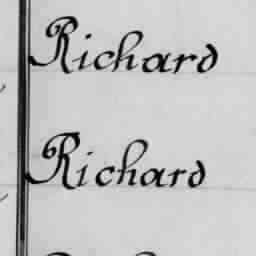 Richard
Richard